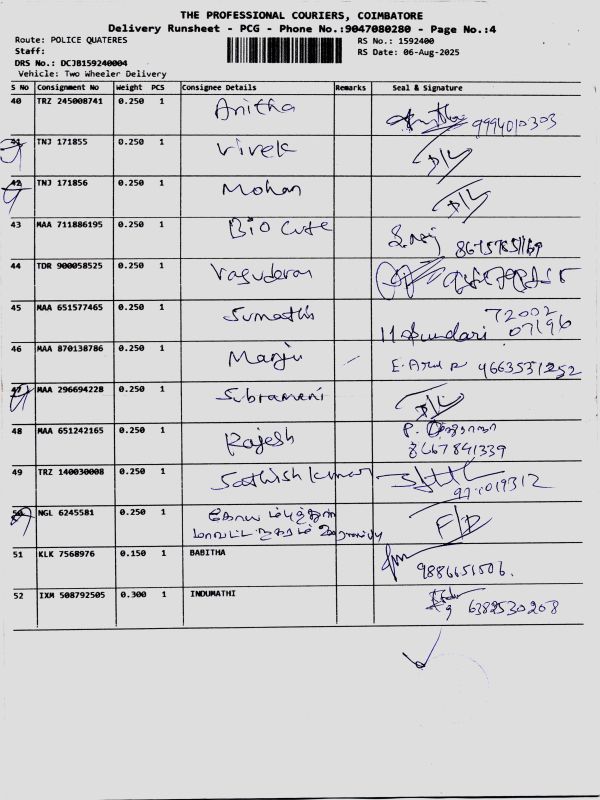 THE PROFESSIONAL COURIERS, COIMBATORE
Delivery Runsheet - PCG - Phone No.:9047080280 - Page No.:4
Route: POLICE QUATERES
RS No.: 1592400
Staff:
RS Date: 06-Aug-2025
DRS No.: DCJB159240004
Vehicle: Two Wheeler Delivery
S No Consignment No Weight PCS Consignee Details Remarks Seal & Signature
40 TRZ 245008741 0.250 1 Anitha 9994010303
41 TNJ 171855 0.250 1 Vivek D/L
42 TNJ 171856 0.250 1 Mohan D/L
43 MAA 711886195 0.250 1 Bio Cute
44 TDR 900058525 0.250 1 Vasudevan
45 MAA 651577465 0.250 1 Sumathi 72002
Sundari 07196
46 MAA 870138786 0.250 1 Manju 9663551252
47 MAA 296694228 0.250 1 Subramani D/L
48 MAA 651242165 0.250 1 Rajesh P.
8667841339
49 TRZ 140030008 0.250 1 Sathish kumar
50 NGL 6245581 0.250 1 F/D
51 KLK 7568976 0.150 1 BABITHA 9886651506.
52 IXM 508792505 0.300 1 INDUMATHI 6382530208